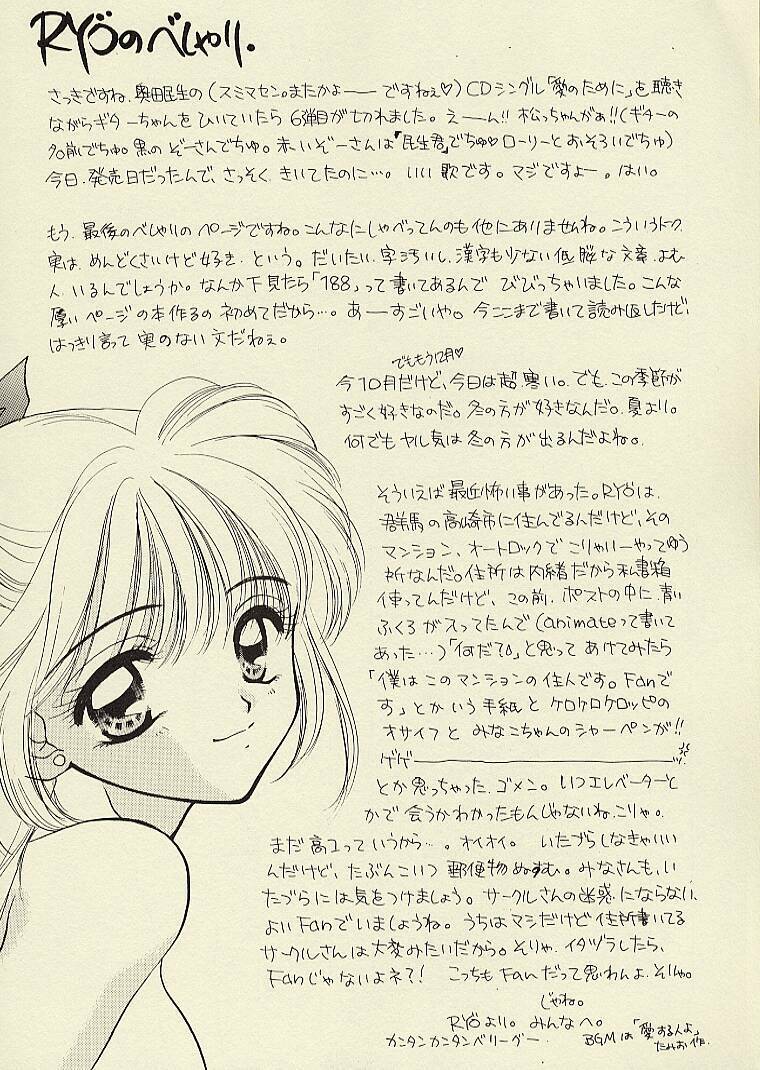 RYÖのべしゃり.
さっきですね、奥田民生の(スミマセン。またかよーーですねぇ♡)CDシングル「愛のために」を聴き
ながらギターちゃんをひいていたら6弾目が切れました。えーん!!松っちゃんがぁ!!(ギターの
名前でちゅ。黒のぞーさんでちゅ。赤いぞーさんは「民生君」でちゅ♡ローリーとおそろいでちゅ)
今日、発売日だったんで、さっそくきいてたのに…。いい歌です。マジですよー。はい。
もう、最後のべしゃりのページですね。こんなにしゃべってんのも他にありませんね。こういうトーク
実は、めんどくさいけど好き、という。だいたい、字汚いし、漢字も少ない低脳な文章、よむ
人、いるんでしょうか。なんか下見たら「188」って書いてあるんで びびっちゃいました。こんな
厚いページの本作るの初めてだから…。あーーすごいや。今ここまで書いて読み返したけど、
はっきり言って実のない文だねぇ。
でももう12月♡
今10月だけど、今日は超、寒い。でも、この季節が
すごく好きなのだ。冬の方が好きなんだ。夏より。
何でもヤル気は冬の方が出るんだよね。
そういえば最近怖い事があった。RYÖは、
群馬の高崎市に住んでるんだけど、その
マンション、オートロックでこりゃいーやってゆう
所なんだ。住所は内緒だから私書箱
使ってんだけど、この前、ポストの中に青い
ふくろが入ってたんで(animateって書いて
あった…)「何だ?」と思ってあけてみたら
「僕はこのマンションの住人です。Fanで
す」とかいう手紙とケロケロケロッピの
オサイフとみなこちゃんのシャーペンが!!
ゲゲーーーー
とか思っちゃった、ゴメン。いつエレベーターと
かで会うかわかったもんじゃないね、こりゃ。
まだ高1っていうから…。オイオイ。いたづらしなきゃいい
んだけど、たぶんこいつ郵便物ぬすむ。みなさんも、い
たづらには気をつけましょう。サークルさんの迷惑にならない、
よいFanでいましょうね。うちはマシだけど住所書いてる
サークルさんは大変みたいだから。そりゃ、イタヅラしたら、
Fanじゃないよネ?! こっちもFanだって思わんよ、そりゃ。
じゃね。
RYÖより。みんなへ。
カンタンカンタンベリーグー.
BGMは「愛する人よ」
たみお作.